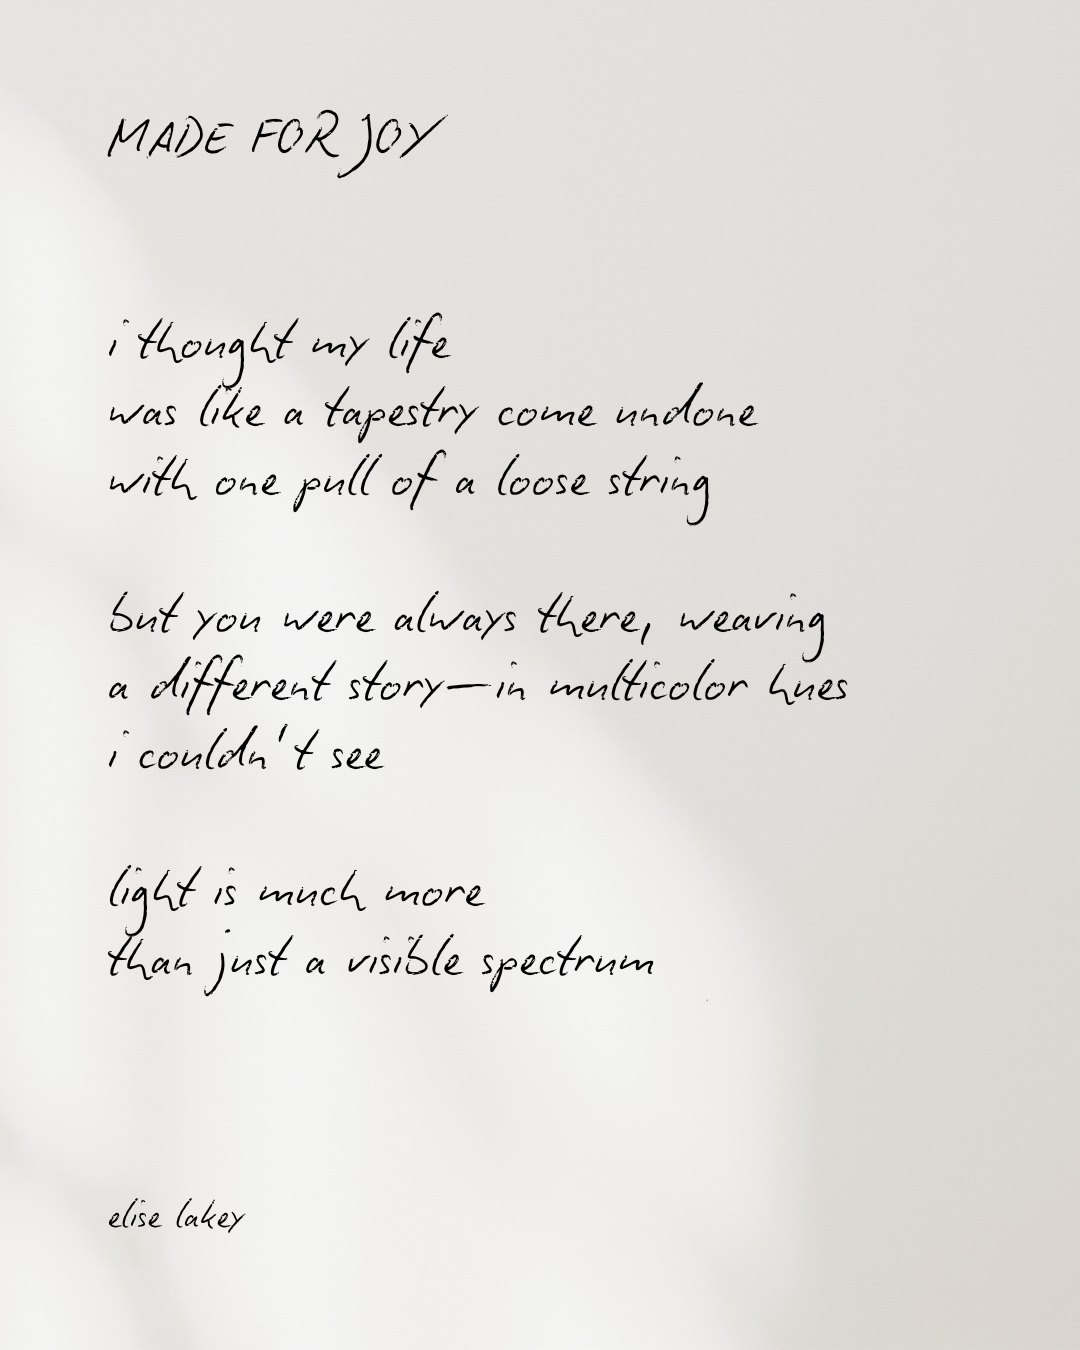 MADE FOR JOY
i thought my life
was like a tapestry come undone
with one pull of a loose string
but you were always there, weaving
a different story—in multicolor hues
i couldn't see
light is much more
than just a visible spectrum
elise lakey